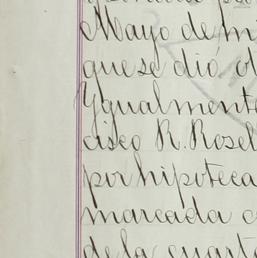 Mayo de mi
que se dió, ol
Ygualmente
cisco R. Rosel
por hipoteca
marcada c
de la cuarta